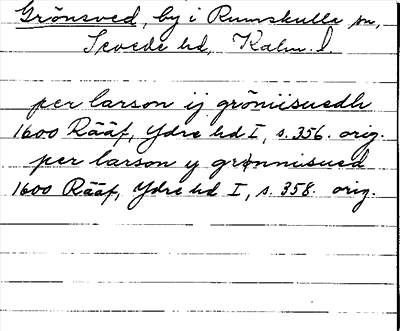 Grönsved, by i Rumskulla sn,
Sevede hd, Kalm. l.
per larson ij gröniisuedh
1600 Rääf, Ydre hd I, s. 356. orig.
per larson y grønnisued
1600 Rääf, Ydre hd I, s. 358. orig.